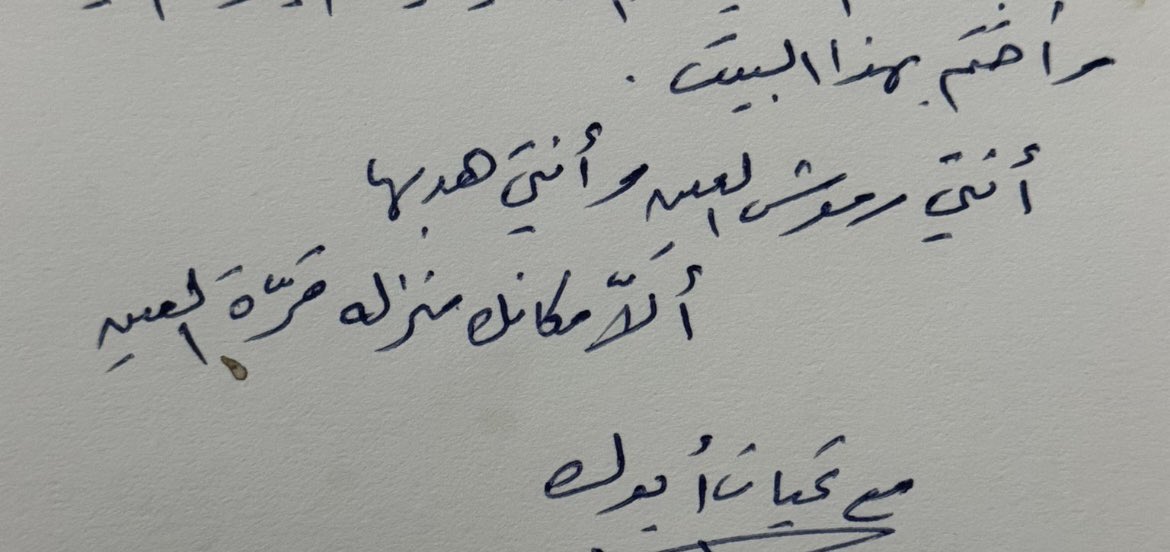 وأختم بهذا البيت .
أنتي رموش العين وأنتي هدبها
ألاّ مكانك منزله قرّة العين
مع تحيات أبوك